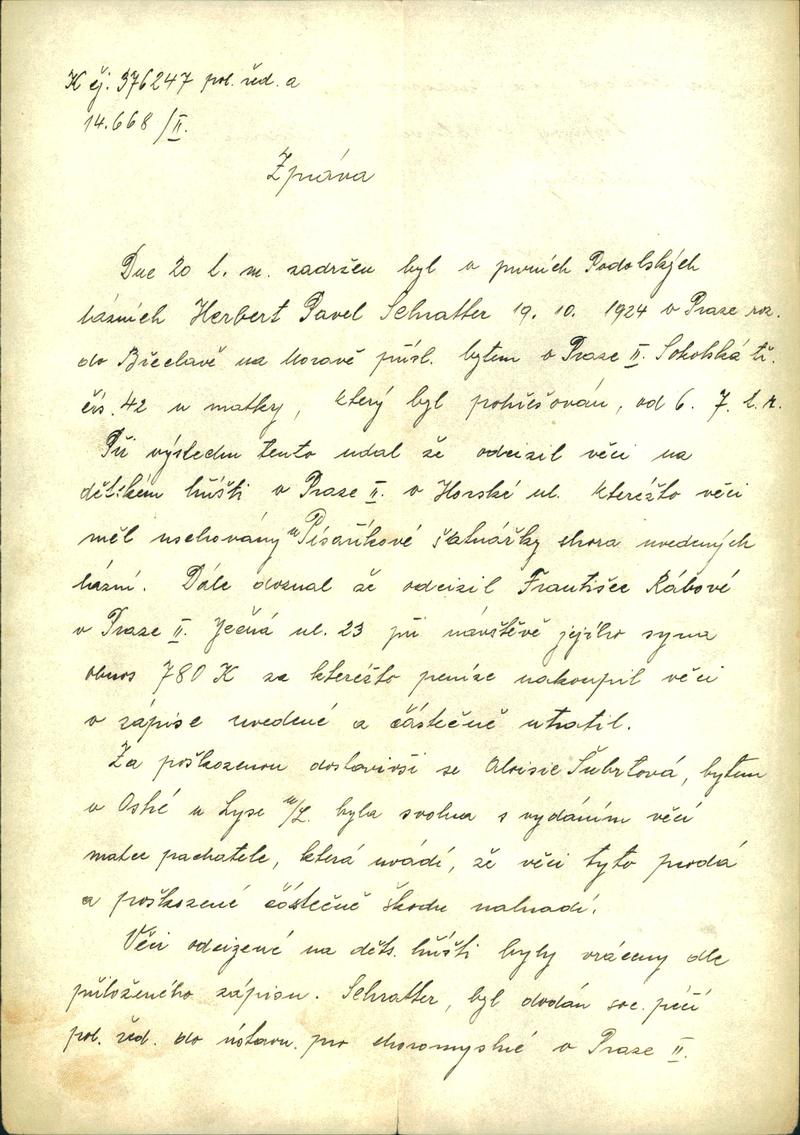 K čj. 376247 pol. řed. a
14.668/II.
Zpráva
Dne 20 t. m. zadržen byl v prvních Podolských
lázních Herbert Pavel Schratter 19. 10. 1924 v Praze roz.
do Břeclavě na Moravě přísl. bytem v Praze II. Sokolská tř.
čís. 42 u matky, který byl pohřešován, od 6. 7. t. r.
Při výslechu tento udal že odcizil věci na
dětském hřišti v Praze II. v Horské ul. kteréžto věci
měl uschovány u Písaříkové šatnářky shora uvedených
lázní. Dále doznal že odcizil Františce Rábové
v Praze II. Ječná ul. 23 při návštěvě jejího syna
obnos 780 K za kteréžto peníze nakoupil věci
v zápise uvedené a částečně utratil.
Za poškozenou dostavivši se Aloisie Šubrtová, bytem
v Ostré u Lysé n/L. byla svolna s vydáním věcí
matce pachatele, která uvádí, že věci tyto prodá
a poškozené částečně škodu nahradí.
Věci odcizené na děts. hřišti byly vráceny dle
přiloženého zápisu. Schratter, byl dodán soc. péčí
pol. řed. do ústavu pro choromyslné v Praze II.